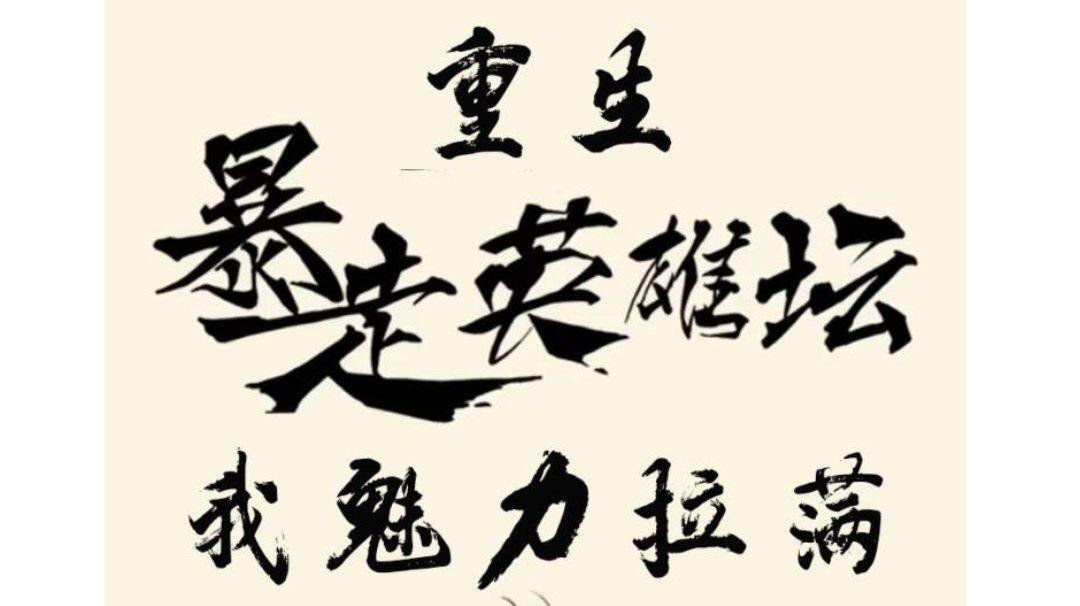 重生
暴走英雄坛
我魅力拉满